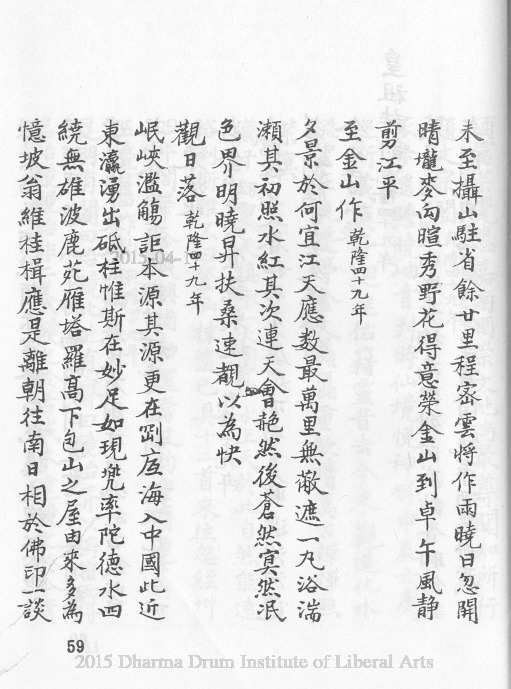 未至攝山駐省餘廿里程密雲將作雨曉日忽開
晴壠麥向暄秀野花得意榮金山到卓午風静
剪江平
至金山作 乾隆四十九年
夕景於何宜江天應数最萬里無蔽遮一丸浴湍
瀬其初照水紅其次連天會赩然後蒼然冥然泯
色界明曉昇扶桑速覩以為快
觀日落 乾隆四十九年
岷峽濫觴詎本源其源更在劉庢海入中國此近
東瀛湧出砥柱惟斯在妙足如現兜率陀德水四
繞無雄波鹿苑雁塔羅高下包山之屋由來多為
憶坡翁維桂楫應是離朝往南日相於佛印一談
59
2015-04-1
2015 Dharma Drum Institute of Liberal Arts